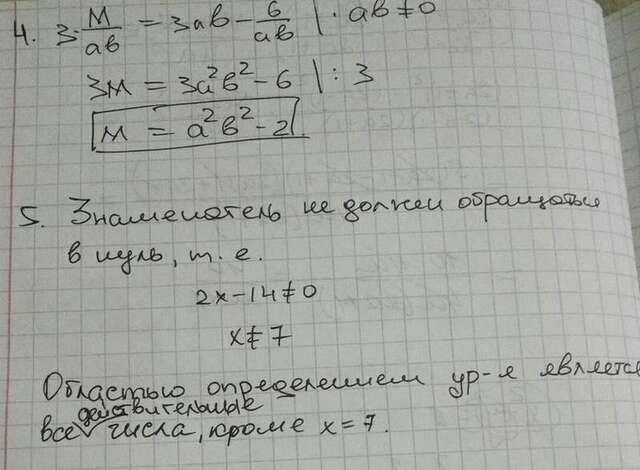 4. 3·м/ав = 3ав − 6/ав | · ав ≠ 0
3м = 3а²в² − 6 | : 3
м = а²в² − 2
5. Знаменатель не должен обращаться
в нуль, т. е.
2x − 14 ≠ 0
x ≠ 7
Областью определением ур-е является
действительные
все числа, кроме x = 7.